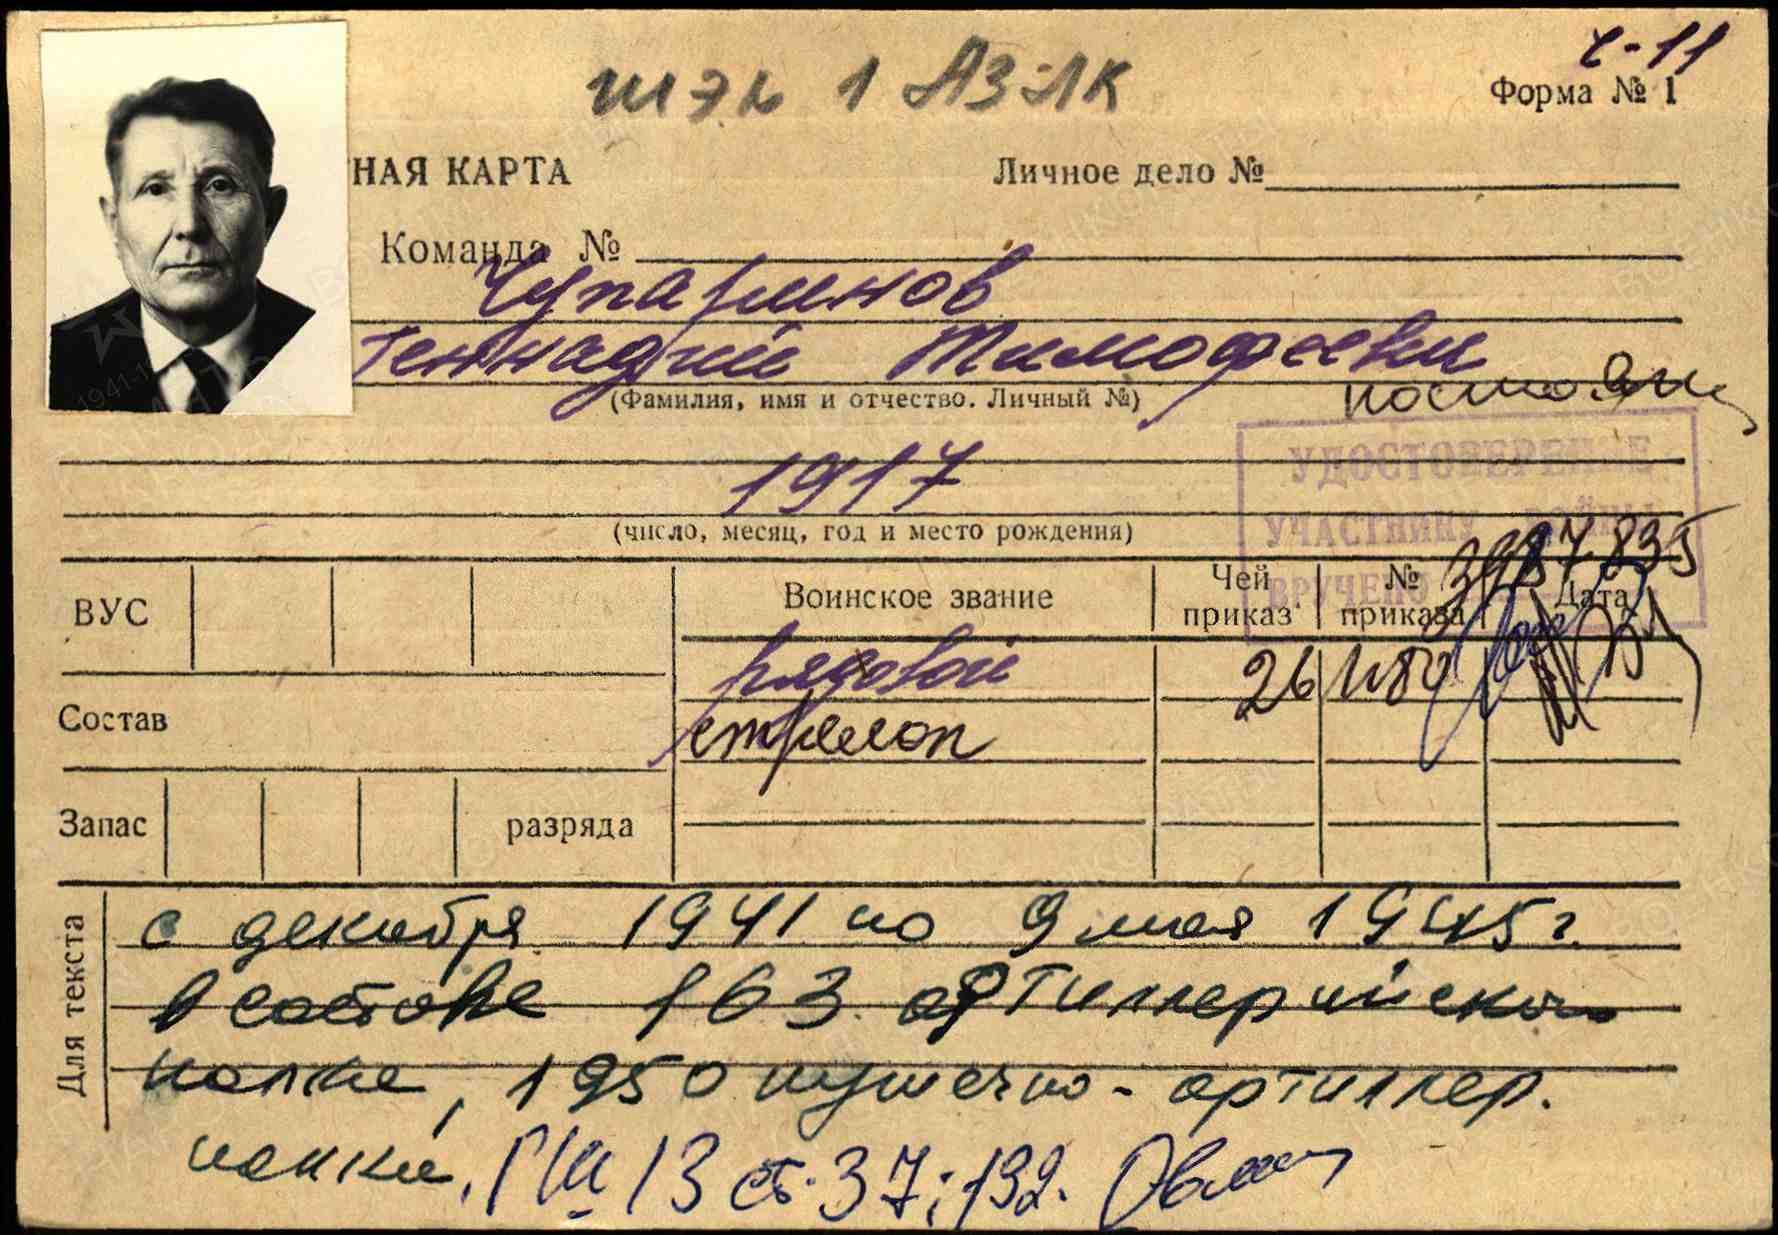 1 АЗЛК
Ч-11
Форма № 1
НАЯ КАРТА
Личное дело №
Команда №
Геннадий Тимофееви
(Фамилия, имя и отчество. Личный №)
постоян
УДОСТОВЕРЕНИЕ
1917
УЧАСТНИКА ВОЙНЫ
(число, месяц, год и место рождения)
ВРУЧЕНО
ВУС
Воинское звание
Чей приказ
№ приказа
Дата
рядовой
26
Состав
стрелок
Запас
разряда
Для текста
с декабря 1941 по 9 мая 1945г.
в составе 163 артиллерийского
полка, 1950 пушечно-артиллер.
полка, ГШ 13 ст. 37; 132.